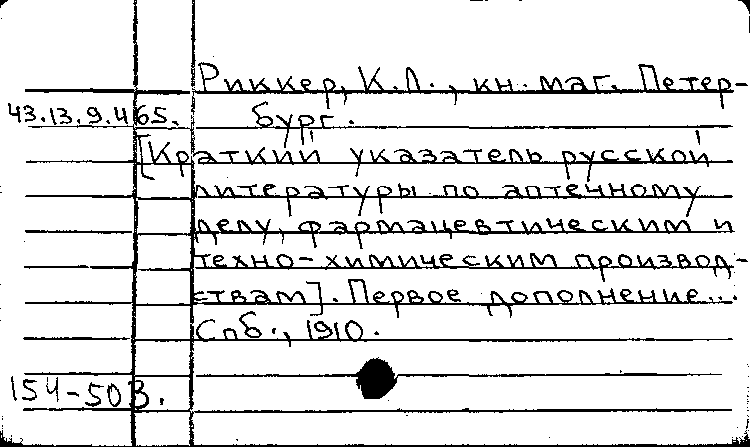 Риккер, К.Л., кн. маг. Петер-
43.13.9.465. бург.
[Краткий указатель русской
литературы по аптечному
делу, фармацевтическим и
техно-химическим производ-
ствам]. Первое дополнение...
Спб., 1910.
154-50В.